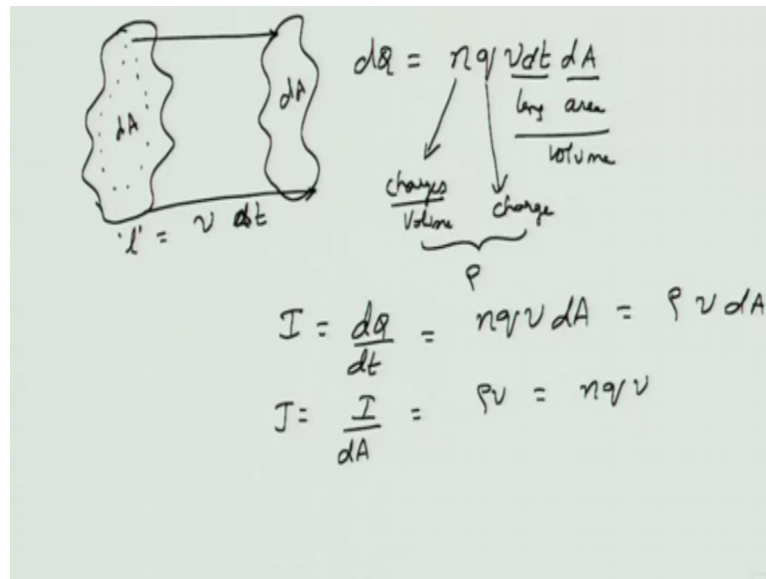 dA
dA
'l' = v dt
dQ = n q vdt dA
leng area
volume
charges
Volume
charge
ρ
I = dQ/dt = nqv dA = ρ v dA
J = I/dA = ρv = nqv